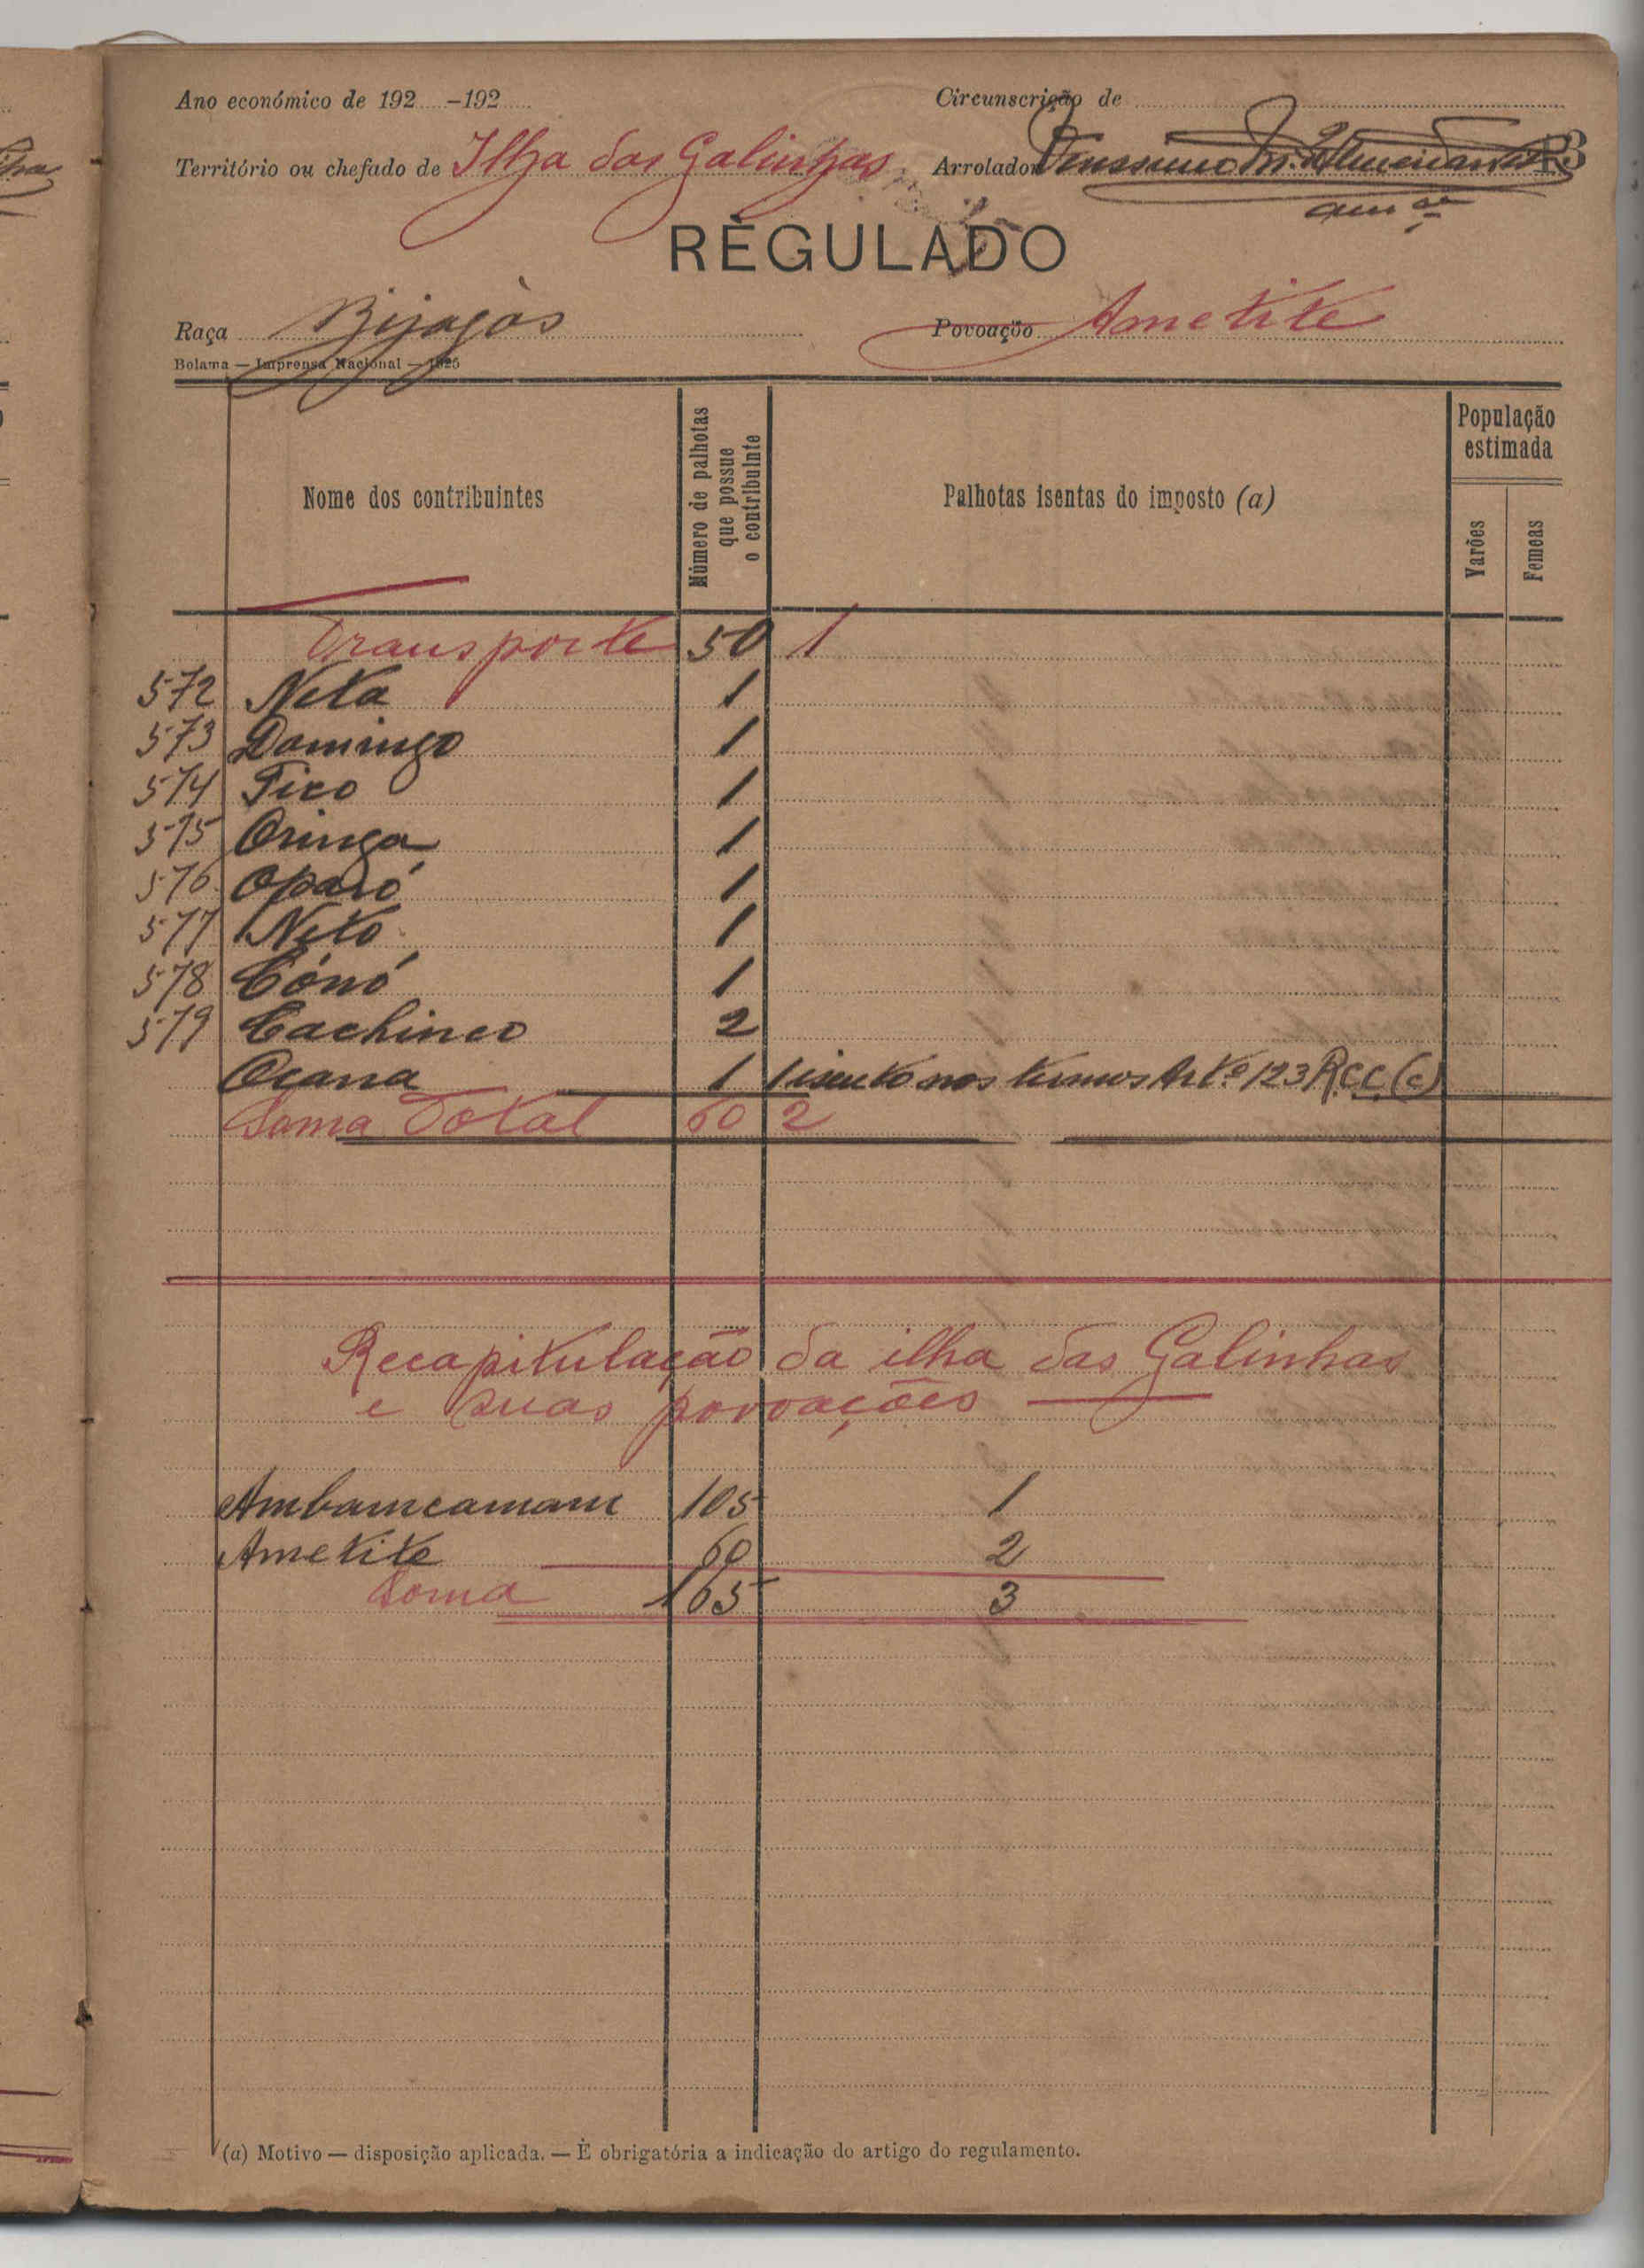 Ano económico de 192 -192
Circunscrição de
Território ou chefado de Ilha das Galinhas
Arrolador
REGULADO
Raça Bijagós
Povoação Ametite
Bolama — Imprensa Nacional — 1925
Nome dos contribuintes
Número de palhotas que possue o contribuinte
Palhotas isentas do imposto (a)
População estimada
Varões
Femeas
Transporte 50 1
572 Neta 1
573 Domingo 1
574 Tico 1
575 Oringa 1
576 Oparó 1
577 Netó 1
578 Cónó 1
579 Cachinco 2
Ocana 1 1 isento nos termos Artº 123 R.C.C. (c)
Soma Total 60 2
Recapitulação da ilha das Galinhas
e suas povoações
Ambancamam 105 1
Ametite 60 2
Soma 165 3
(a) Motivo — disposição aplicada. — É obrigatória a indicação do artigo do regulamento.